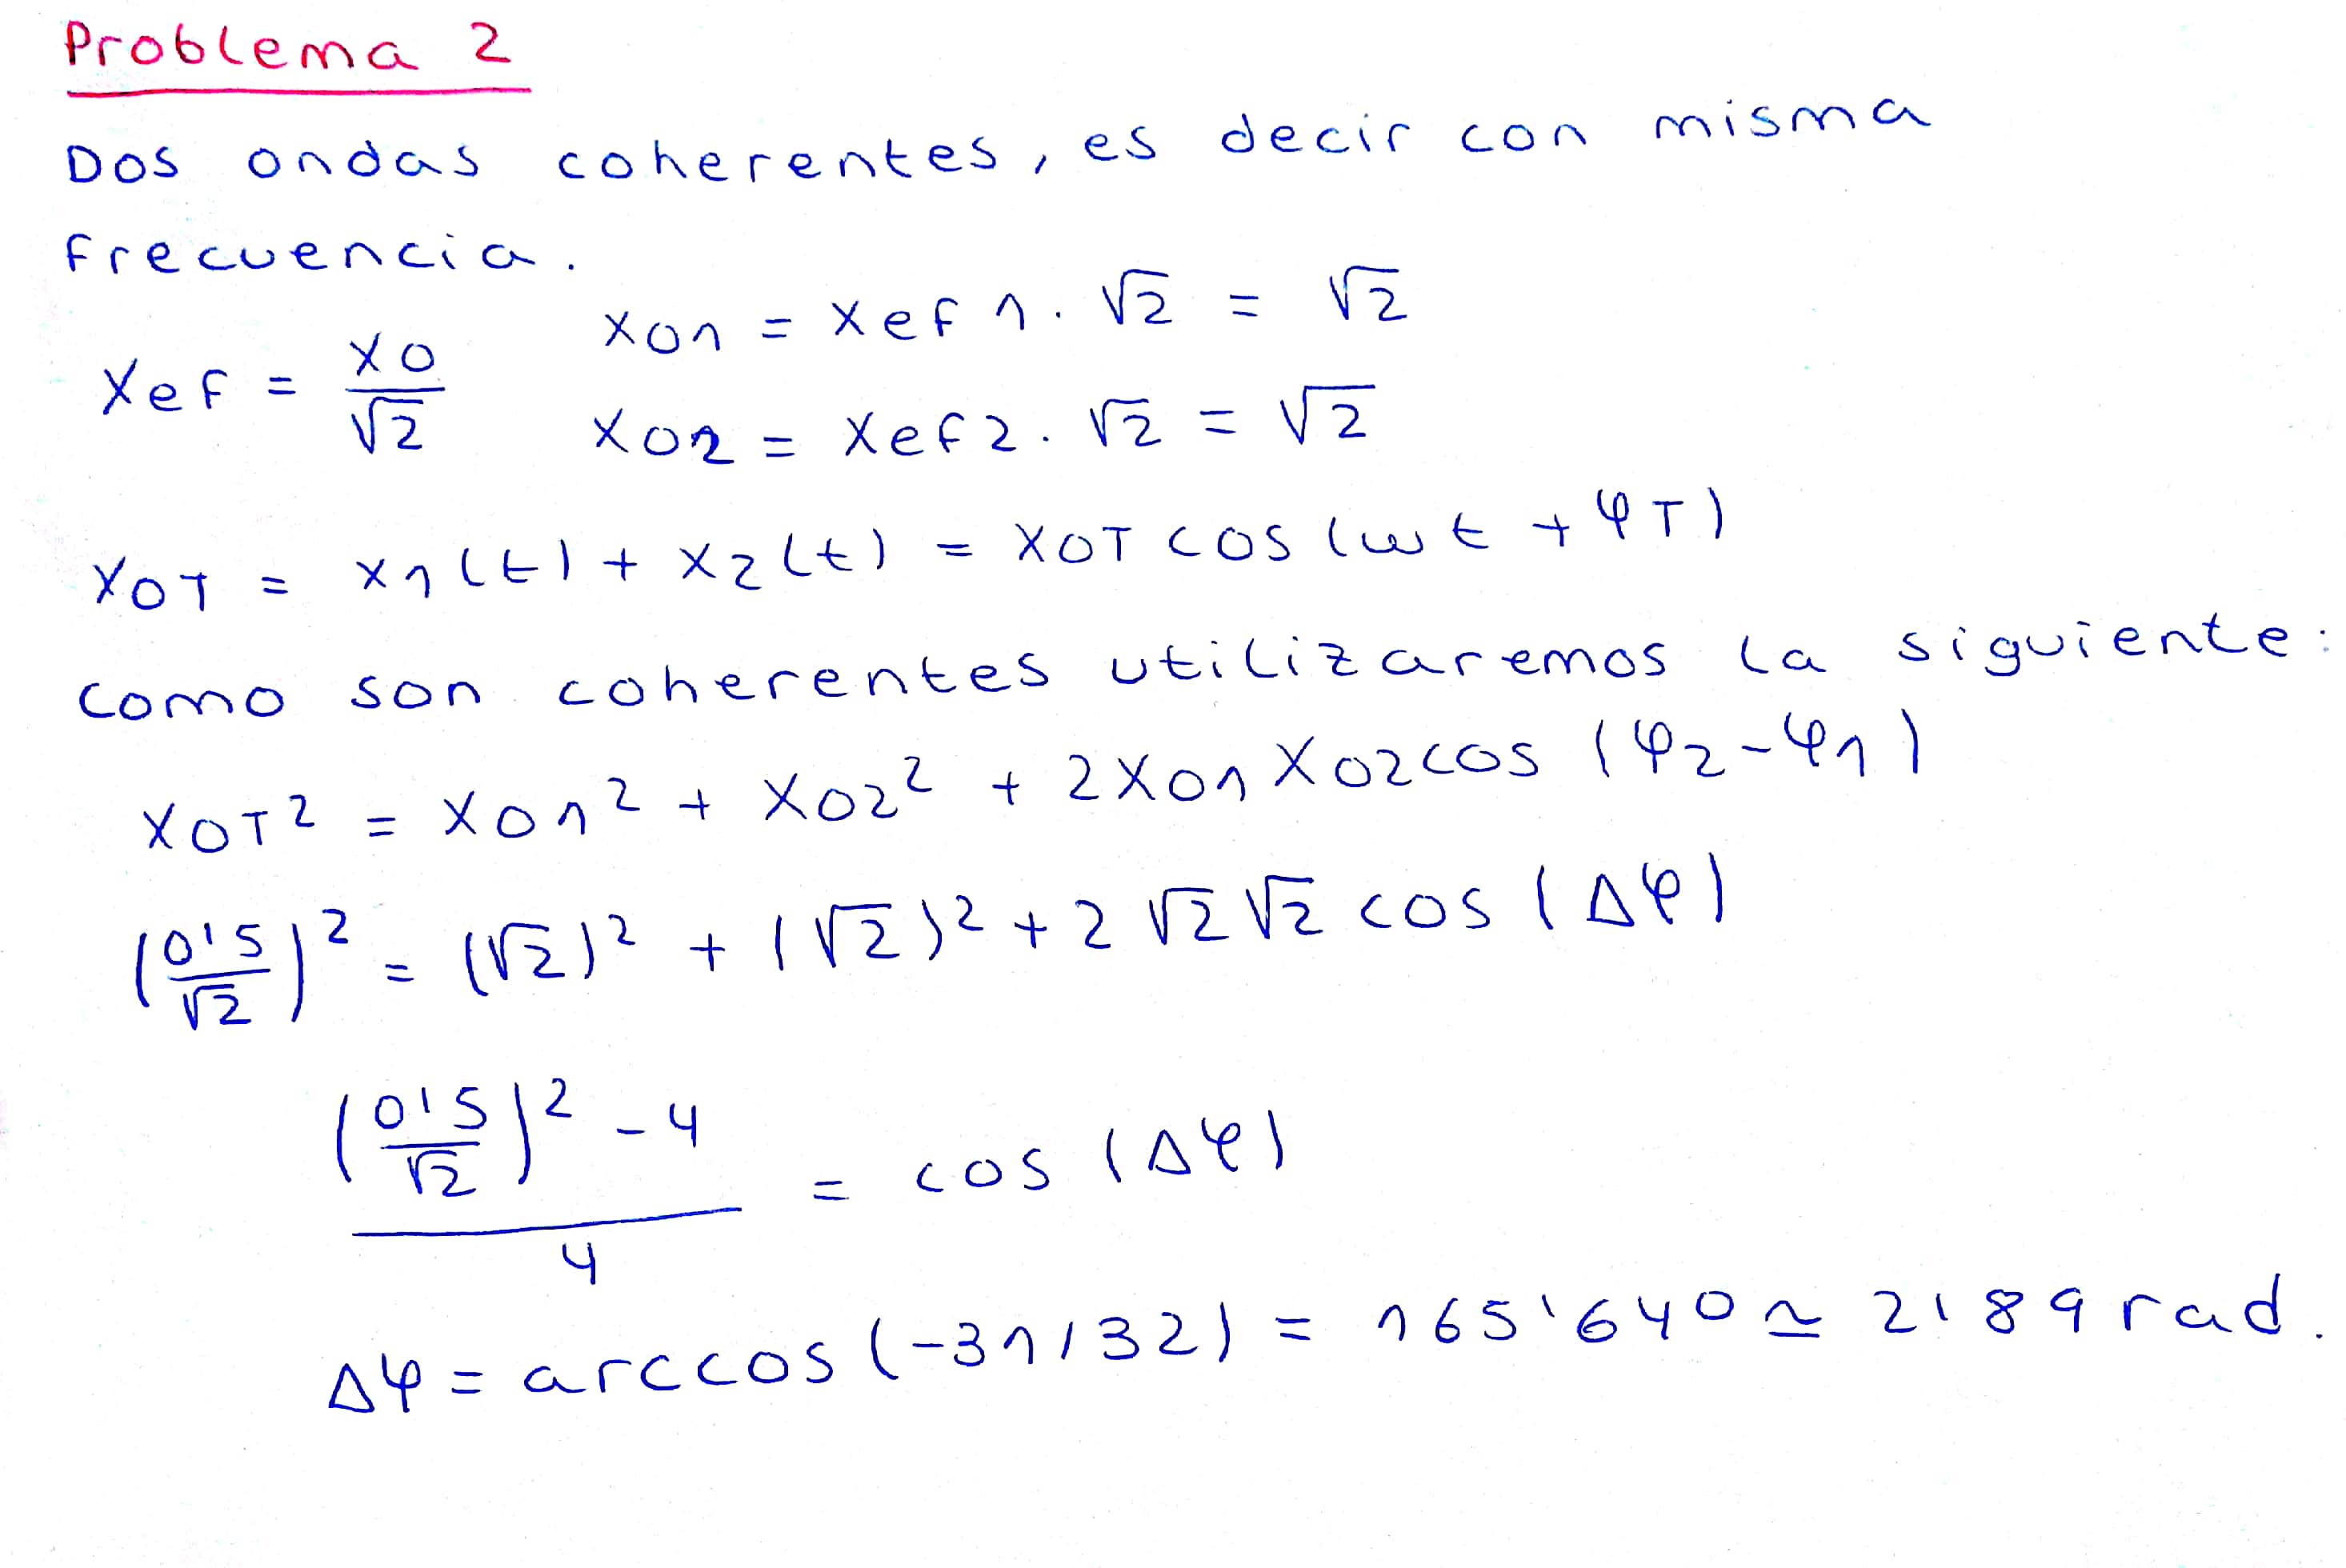 Problema 2
Dos ondas coherentes, es decir con misma
frecuencia.
Xef = X0/√2
X01 = Xef1·√2 = √2
X02 = Xef2·√2 = √2
X0T = x1(t) + x2(t) = X0T cos(ωt + φT)
como son coherentes utilizaremos la siguiente:
X0T² = X01² + X02² + 2X01X02cos(φ2-φ1)
(0'5/√2)² = (√2)² + (√2)² + 2√2√2 cos(Δφ)
((0'5/√2)² - 4)/4 = cos(Δφ)
Δφ = arccos(-31/32) = 165'640 ≃ 2'89 rad.